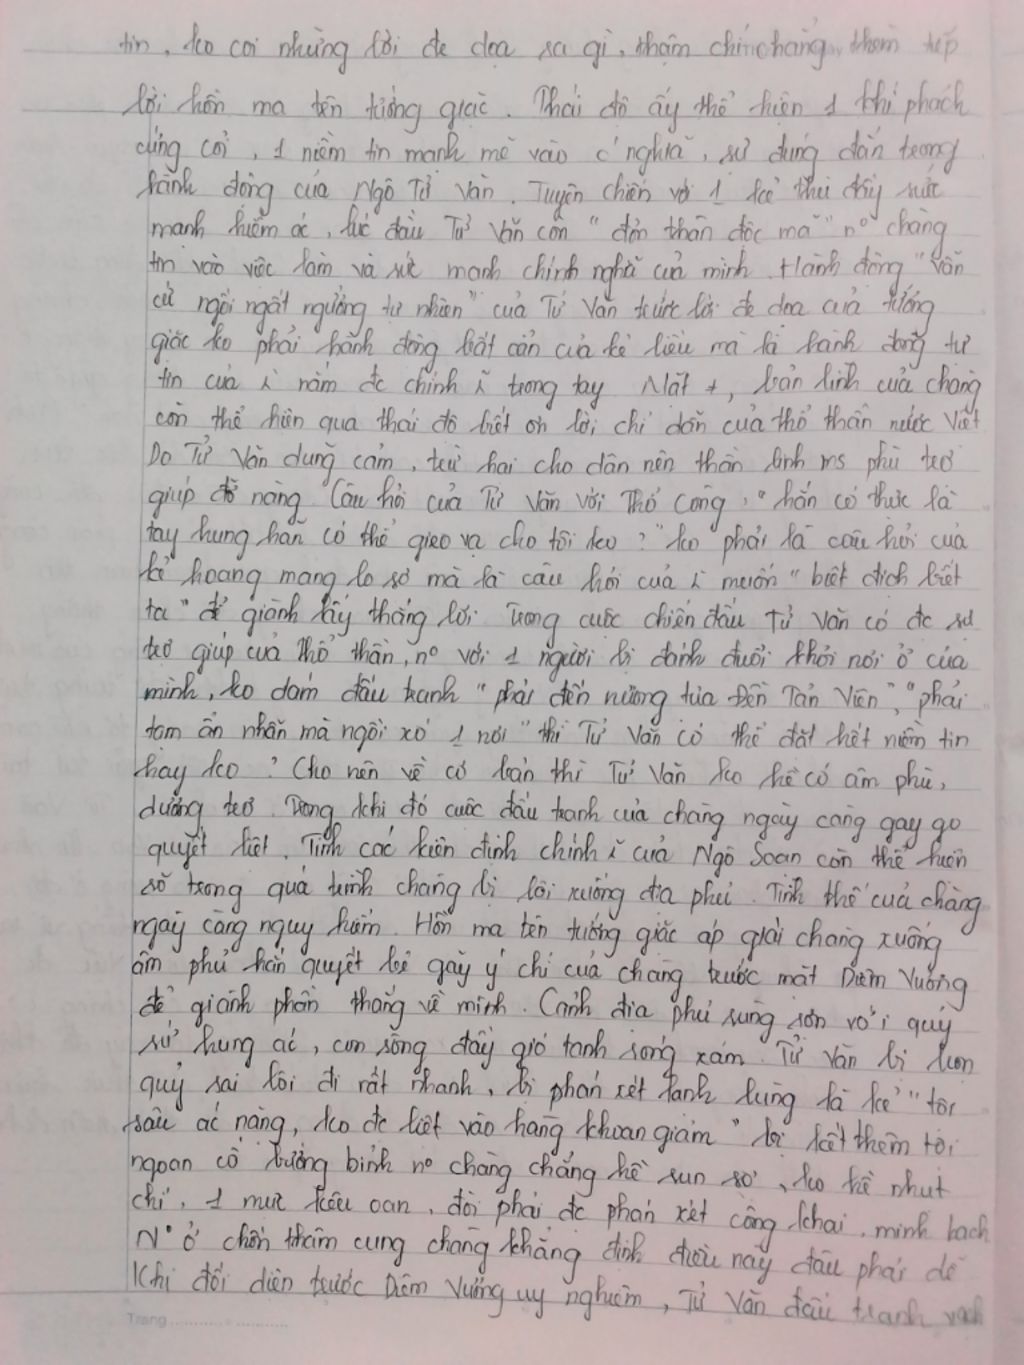 tin, ko coi những lời đe dọa ra gì, thậm chí chẳng thèm tiếp
lời hồn ma tên tướng giặc. Thái độ ấy thể hiện 1 khí phách
cứng cỏi, 1 niềm tin mạnh mẽ vào c' nghĩa, sự đúng đắn trong
hành động của Ngô Tử Văn. Tuyên chiến với 1 kẻ thù đầy sức
mạnh hiểm ác, lúc đầu Tử Văn còn "đơn thân độc mã" nº chàng
tin vào việc làm và sức mạnh chính nghĩa của mình. Hành động "vẫn
cứ ngồi ngất ngưởng tự nhiên" của Tử Văn trước lời đe dọa của tướng
giặc ko phải hành động bất cần của kẻ liều mà là hành động tự
tin của ì nắm đc chính ĩ trong tay. Mặt +, bản lĩnh của chàng
còn thể hiện qua thái độ biết ơn lời chỉ dẫn của thổ thần nước Việt
Do Tử Văn dũng cảm, trừ hại cho dân nên thần linh ms phù trợ
giúp đỡ nàng. Câu hỏi của Tử Văn với Thổ Công: "hắn có thực là
tay hung hãn có thể gieo vạ cho tôi ko?" ko phải là câu hỏi của
kẻ hoang mang lo sợ mà là câu hỏi của ì muốn "biết địch biết
ta" để giành lấy thắng lợi. Trong cuộc chiến đấu Tử Văn có đc sự
trợ giúp của thổ thần, nº với 1 người bị đánh đuổi khỏi nơi ở của
mình, ko dám đấu tranh "phải đến nương tựa Đền Tản Viên", "phải
tạm ẩn nhẫn mà ngồi xó 1 nơi" thì Tử Văn có thể đặt hết niềm tin
hay ko? Cho nên về cơ bản thì Tử Văn ko hề có âm phù,
dương trợ. Trong khi đó cuộc đấu tranh của chàng ngày càng gay go
quyết liệt. Tính cách kiên định chính ĩ của Ngô Soạn còn thể hiện
rõ trong quá trình chàng bị lôi xuống địa phủ. Tình thế của chàng
ngày càng nguy hiểm. Hồn ma tên tướng giặc áp giải chàng xuống
âm phủ hắn quyết bẻ gãy ý chí của chàng trước mặt Diêm Vương
để giành phần thắng về mình. Cảnh địa phủ rùng rợn với quỷ
sứ hung ác, con sông đầy gió tanh sóng xám. Tử Văn bị lũ
quỷ sai lôi đi rất nhanh, bị phán xét lạnh lùng là kẻ "tội
sâu ác nặng, ko đc liệt vào hàng khoan giảm" bị kết thêm tội
ngoan cố bướng bỉnh nº chàng chẳng hề run sợ, ko hề nhụt
chí, 1 mực kêu oan, đòi phải đc phán xét công khai, minh bạch
Nº ở chốn thâm cung chàng khẳng định điều này đâu phải dễ
Khi đối diện trước Diêm Vương uy nghiêm, Tử Văn đấu tranh vạch
Trang